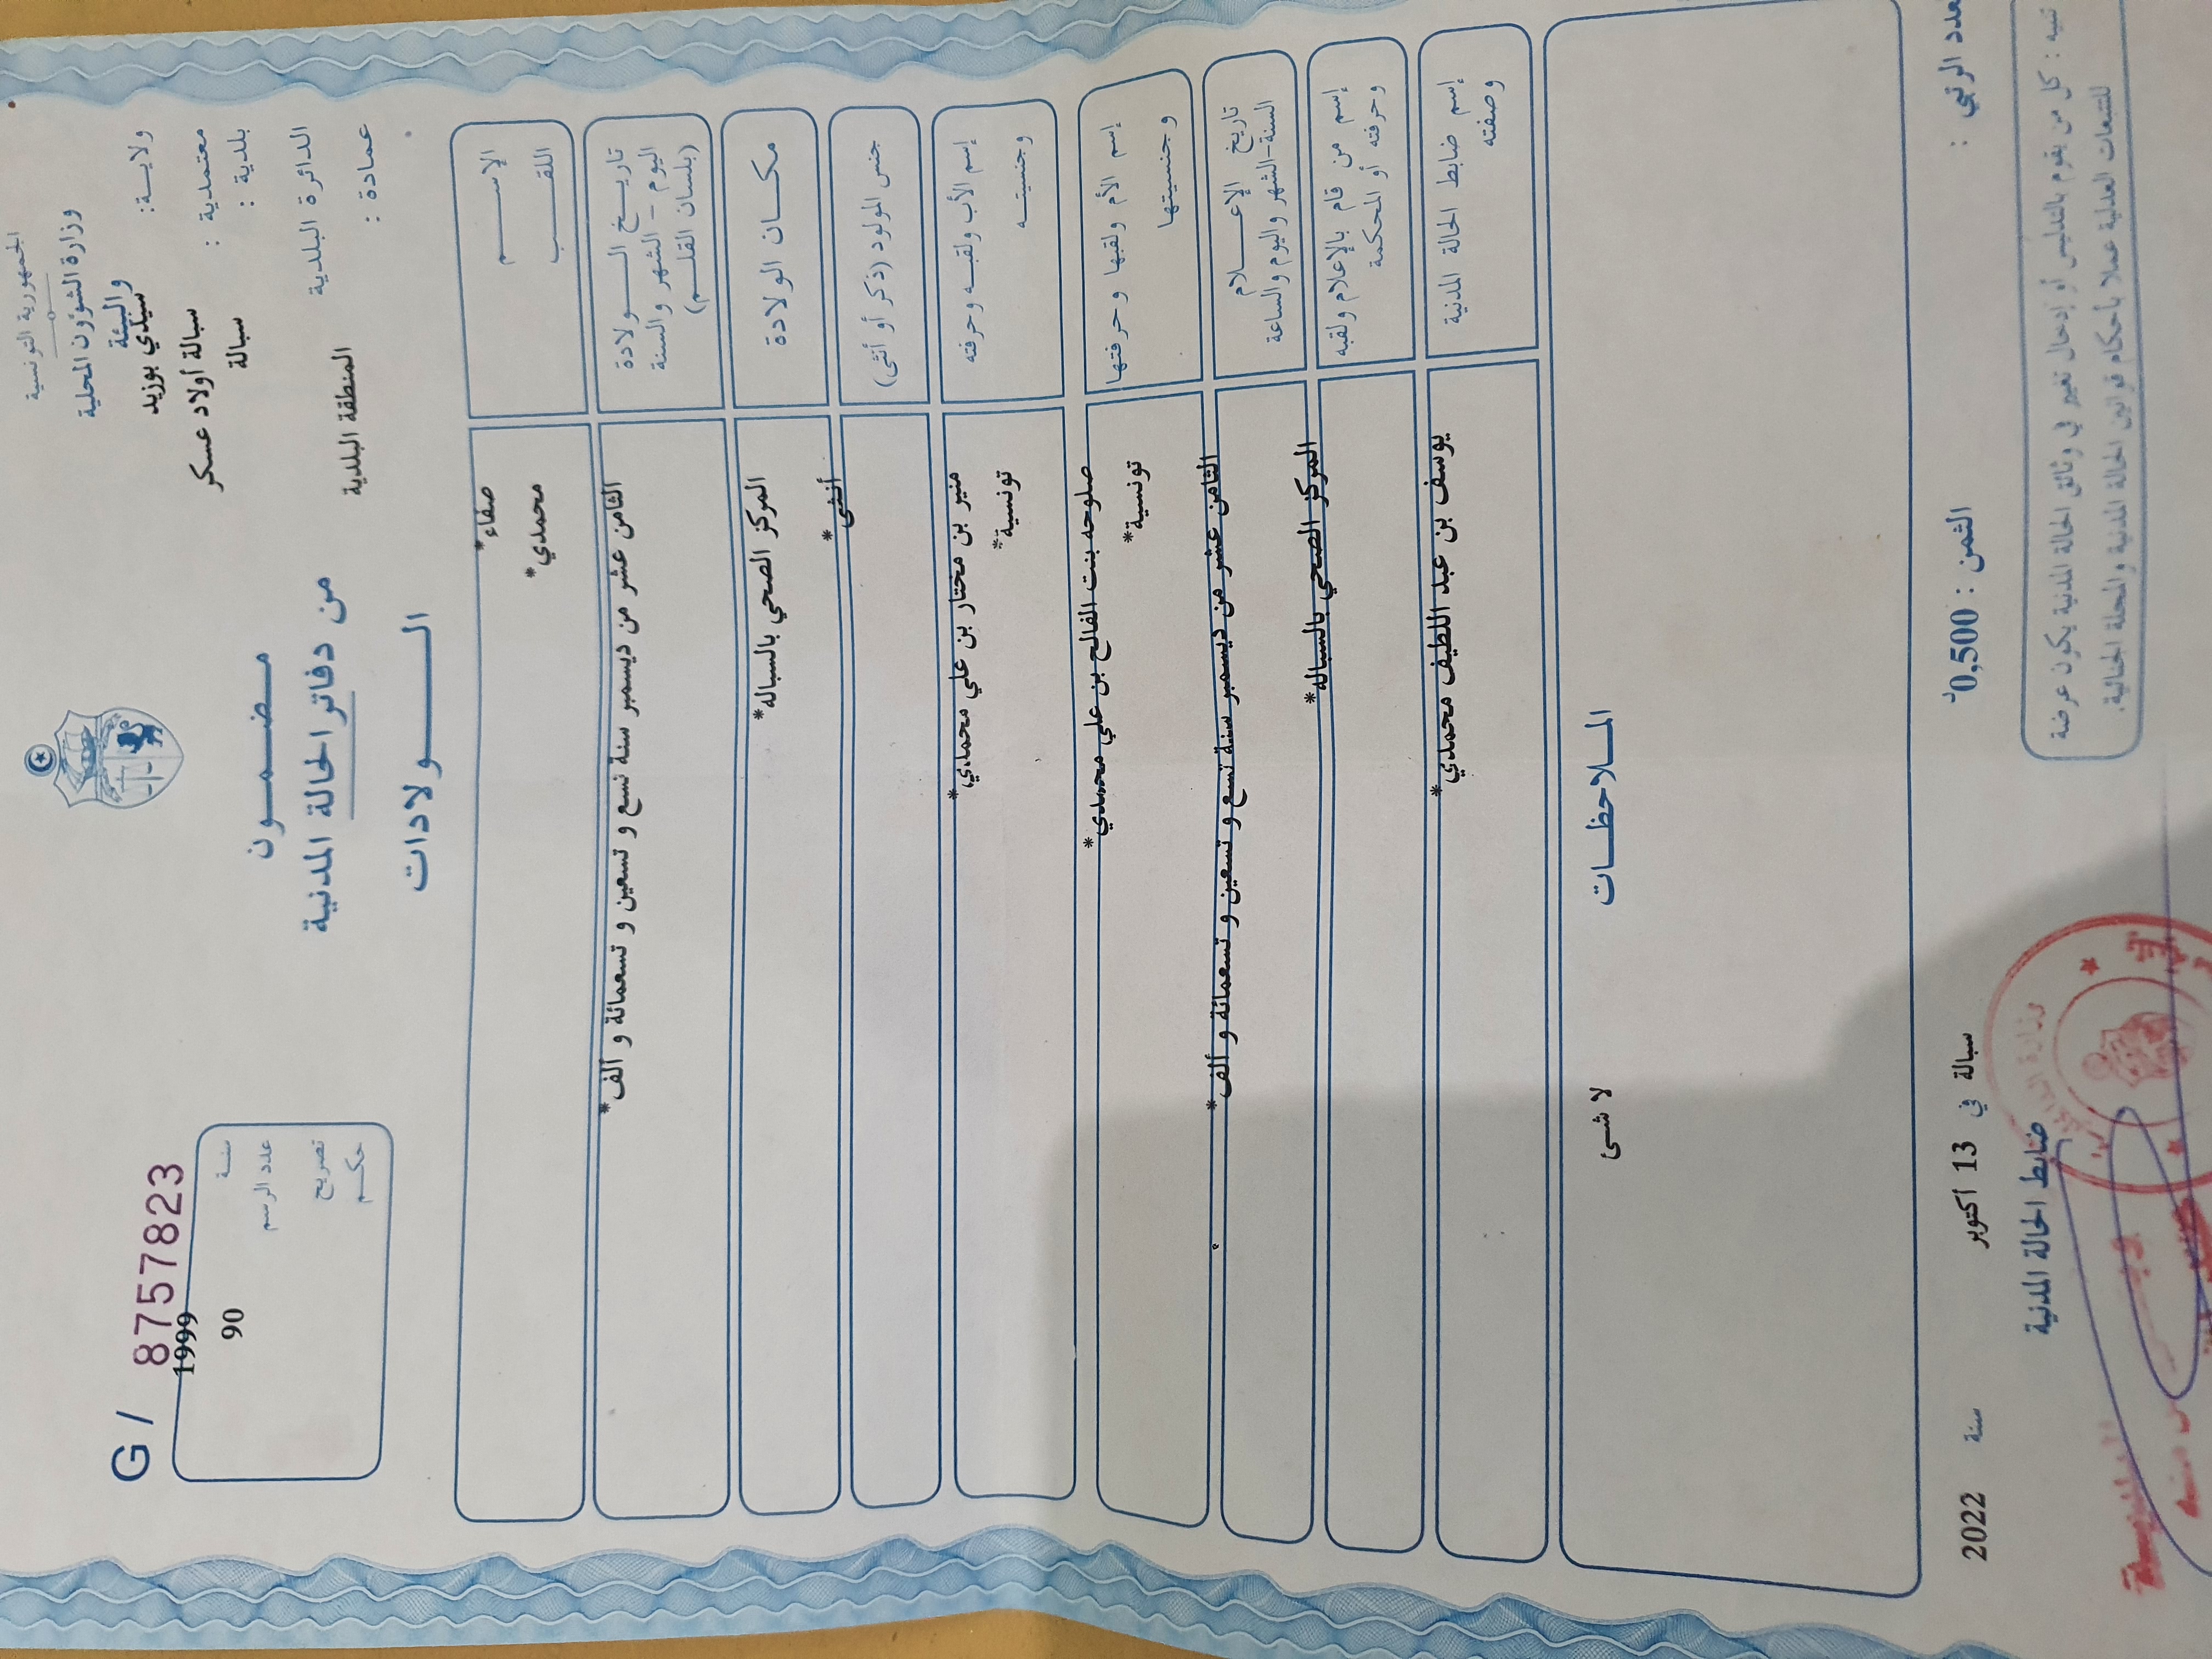 الجمهورية التونسية
وزارة الشؤون المحلية
والبيئة
ولايــة: سيدي بوزيد
معتمدية : سبالة أولاد عسكر
بلدية : سبالة
الدائرة البلدية
المنطقة البلدية
عمادة :
مضمــون
من دفاتر الحالة المدنية
الـــولادات
G / 8757823
سنة 1999
عدد الرسم 90
تصريح
حكم
الإســـم صفاء*
اللقـــب محمدي*
تاريــخ الـــولادة
اليوم - الشهر والسنة
(بلسان القلــم)
الثامن عشر من ديسمبر سنة تسع و تسعين و تسعمائة و ألف*
مكــان الولادة المركز الصحي بالسباله*
جنس المولود (ذكر أو أنثى) أنثى*
إسم الأب ولقبـه وحرفته منير بن مختار بن علي محمدي*
وجنسيتــه تونسية*
إسم الأم ولقبها وحرفتها صلوحه بنت الفالح بن علي محمدي*
وجنسيتها تونسية*
تاريخ الإعــلام
السنة-الشهر واليوم والساعة
الثامن عشر من ديسمبر سنة تسع و تسعين و تسعمائة و ألف*
إسم من قام بالإعلام ولقبه
وحرفته أو المحكمة
المركز الصحي بالسباله*
إسم ضابط الحالة المدنية
وصفته
يوسف بن عبد اللطيف محمدي*
المــلاحظــات
لا شئ
العدد الرتبي :
الثمن : 0,500د
سبالة في 13 أكتوبر سنة 2022
ضابط الحالة المدنية
تنبيه : كل من يقوم بالتدليس أو إدخال تغيير في وثائق الحالة المدنية يكون عرضة
للتتبعات العدلية عملا بأحكام قوانين الحالة المدنية والمجلة الجنائية.